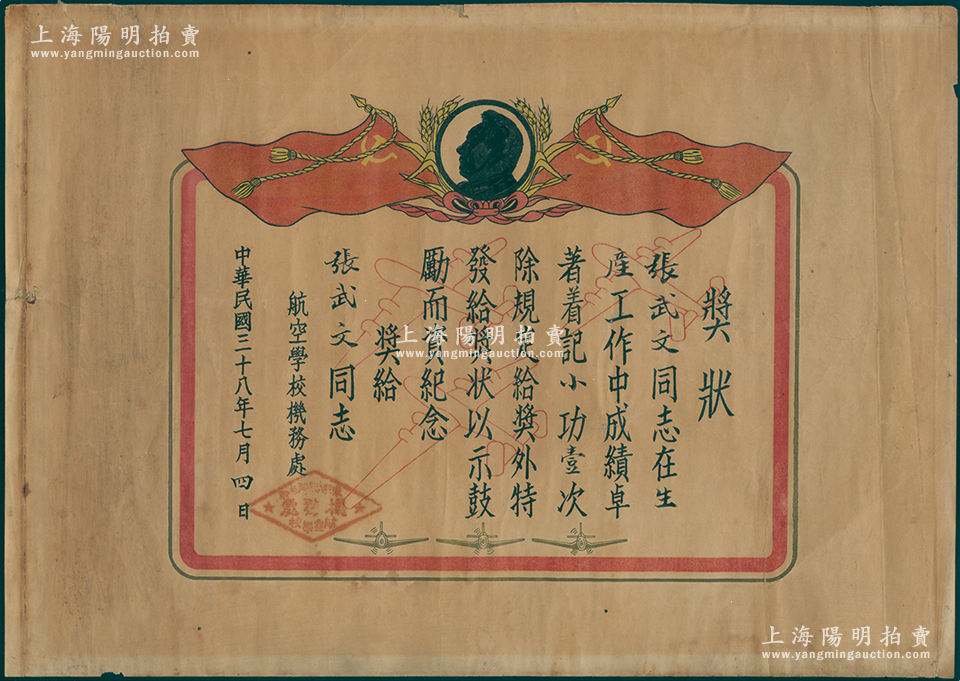 上海陽明拍賣
www.yangmingauction.com
獎狀
張武文同志在生
産工作中成績卓
著着記小功壹次
除規定給獎外特
發給獎状以示鼓
勵而資紀念
獎給
張武文同志
航空學校機務處
中華民國三十八年七月四日
上海陽明拍賣
www.yangmingauction.com
上海陽明拍賣
www.yangmingauction.com